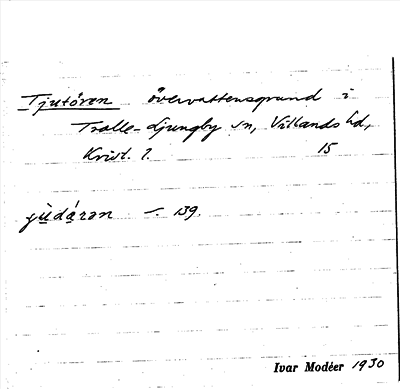 Tjutören övervattensgrund i
Tralle-Ljungby sn, Villands hd,
Krist. l. 15
jùdȧrən — 139.
Ivar Modéer 1930